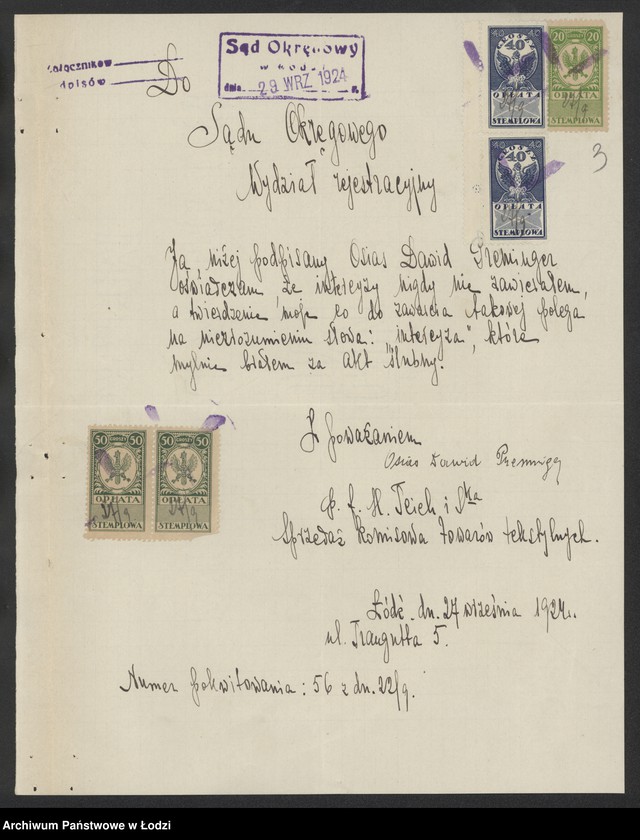 załączników
odpisów
Sąd Okręgowy
w Łodzi
dnia 29 WRZ 1924 r.
40 GROSZY 40
OPŁATA
STEMPLOWA
20 20
OPŁATA
STEMPLOWA
40 GROSZY 40
OPŁATA
STEMPLOWA
3
Do
Sądu Okręgowego
Wydział rejestracyjny
Ja niżej podpisany Osias Dawid Preminger
oświadczam że intercyzy nigdy nie zawierałem,
a twierdzenie moje co do zawarcia takowej polega
na niezrozumieniu słowa: "intercyza", które
mylnie brałem za akt ślubny.
Z poważaniem
Osias Dawid Preminger
p. f. H. Teich i Ska
Sprzedaż komisowa towarów tekstylnych.
50 GROSZY 50
OPŁATA
STEMPLOWA
50 GROSZY 50
OPŁATA
STEMPLOWA
Łódź dn. 27 września 1924 r.
ul. Traugutta 5.
Numer pokwitowania: 56 z dn. 22/9.
Archiwum Państwowe w Łodzi